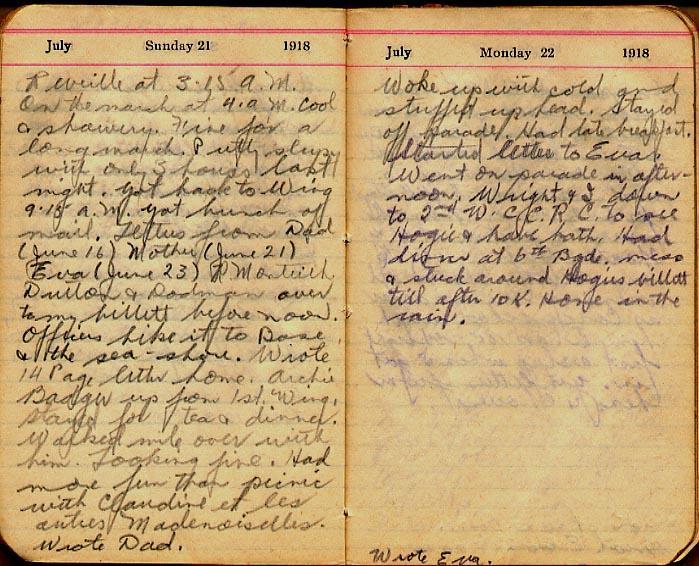 July Sunday 21 1918
Reveille at 3.15 A.M.
On the march at 4. a.M. Cool
& showery. Fine for a
long march. P utty sleepy
with only 3 hours last
night. Got back to Wing
9.15 a.M. Got bunch of
mail. Letters from Dad
(June 16) Mother (June 21)
Eva (June 23) Monteith
Dutton & Rodman over
to my billett before noon.
Officers hike it to Base
& the sea-shore. Wrote
14 Page letter home. Archie
Badger up from 1st. Wing.
Stayed for tea & dinner.
Walked mile over with
him. Looking fine. Had
more fun than picnic
with Claudine et les
autres Madenoiselles.
Wrote Dad.
July Monday 22 1918
Woke up with cold and
stuffed up head. Stayed
off parade. Had late breakfast.
Started letter to Eva.
Went on parade in after-
noon. Wright & I down
to 2nd W. C. C. R. C. to see
Hogie & have bath. Had
dinner at 6th Bgde. mess
& stuck around Hogies billett
till after 10 K. Home in the
rain.
Wrote Eva.